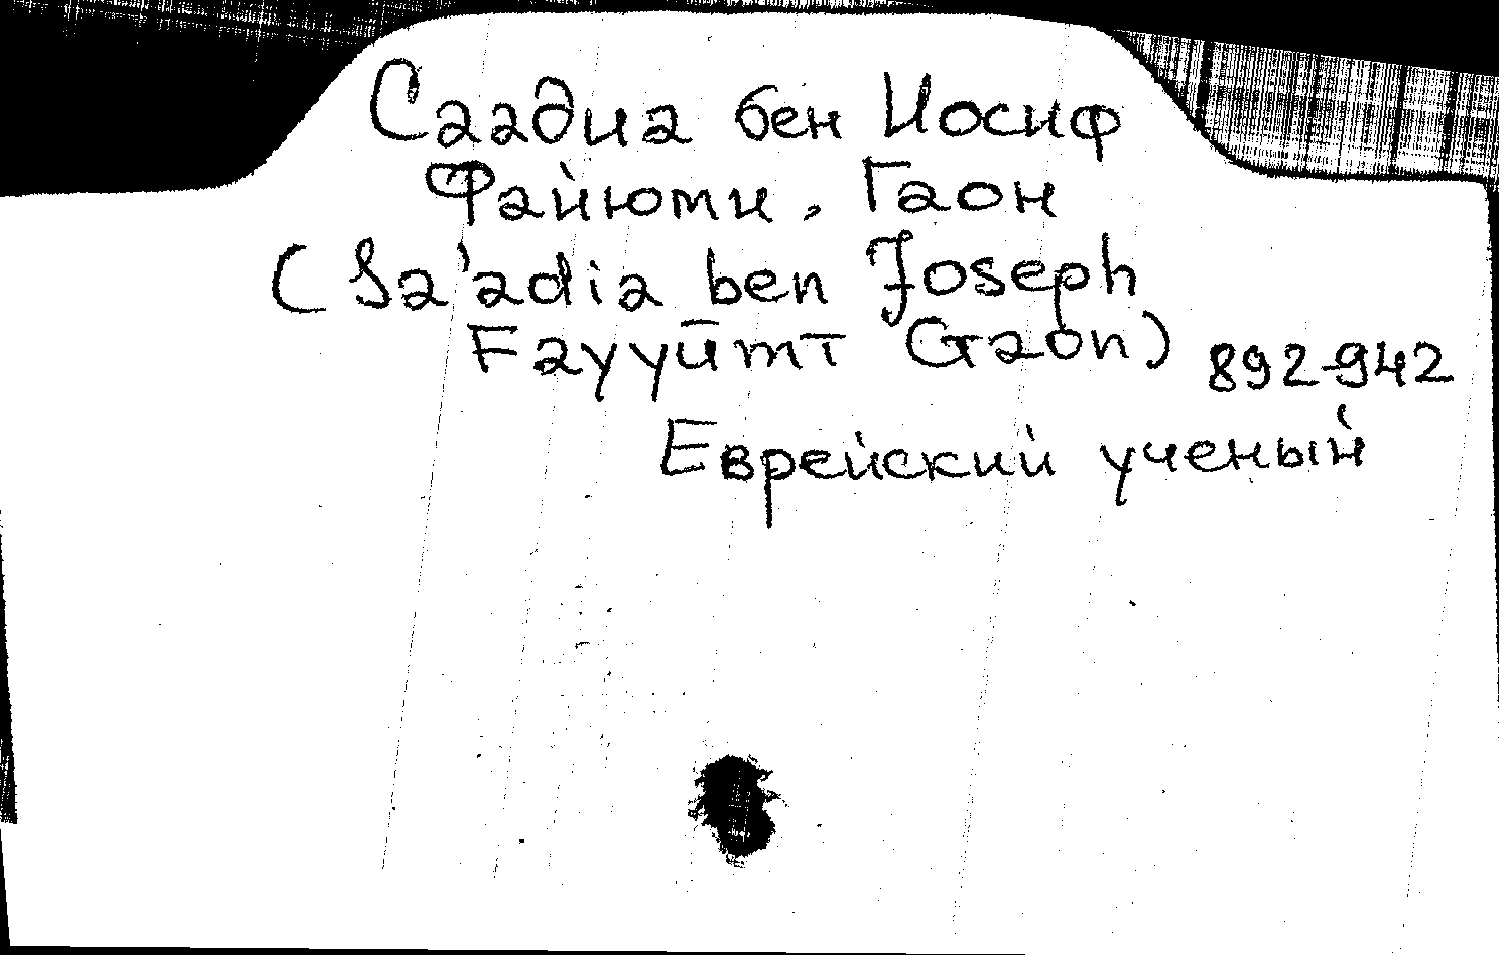 Саадиа бен Иосиф
Файюми, Гаон
(Sa'adia ben Joseph
Fayyūmī Gaon) 892-942
Еврейский ученый